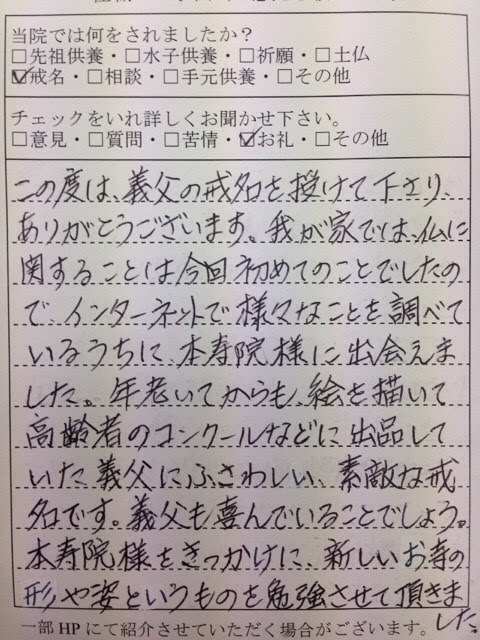 当院では何をされましたか？
□先祖供養・□水子供養・□祈願・□土仏
☑戒名・□相談・□手元供養・□その他
チェックをいれ詳しくお聞かせ下さい。
□意見・□質問・□苦情・☑お礼・□その他
この度は、義父の戒名を授けて下さり、
ありがとうございます。我が家では、仏に
関することは今回初めてのことでしたの
で、インターネットで様々なことを調べて
いるうちに、本寿院様に出会えま
した。年老いてからも、絵を描いて
高齢者のコンクールなどに出品して
いた義父にふさわしい、素敵な戒
名です。義父も喜んでいることでしょう。
本寿院様をきっかけに、新しいお寺の
形や姿というものを勉強させて頂きま
した。
一部HPにて紹介させていただく場合がございます。